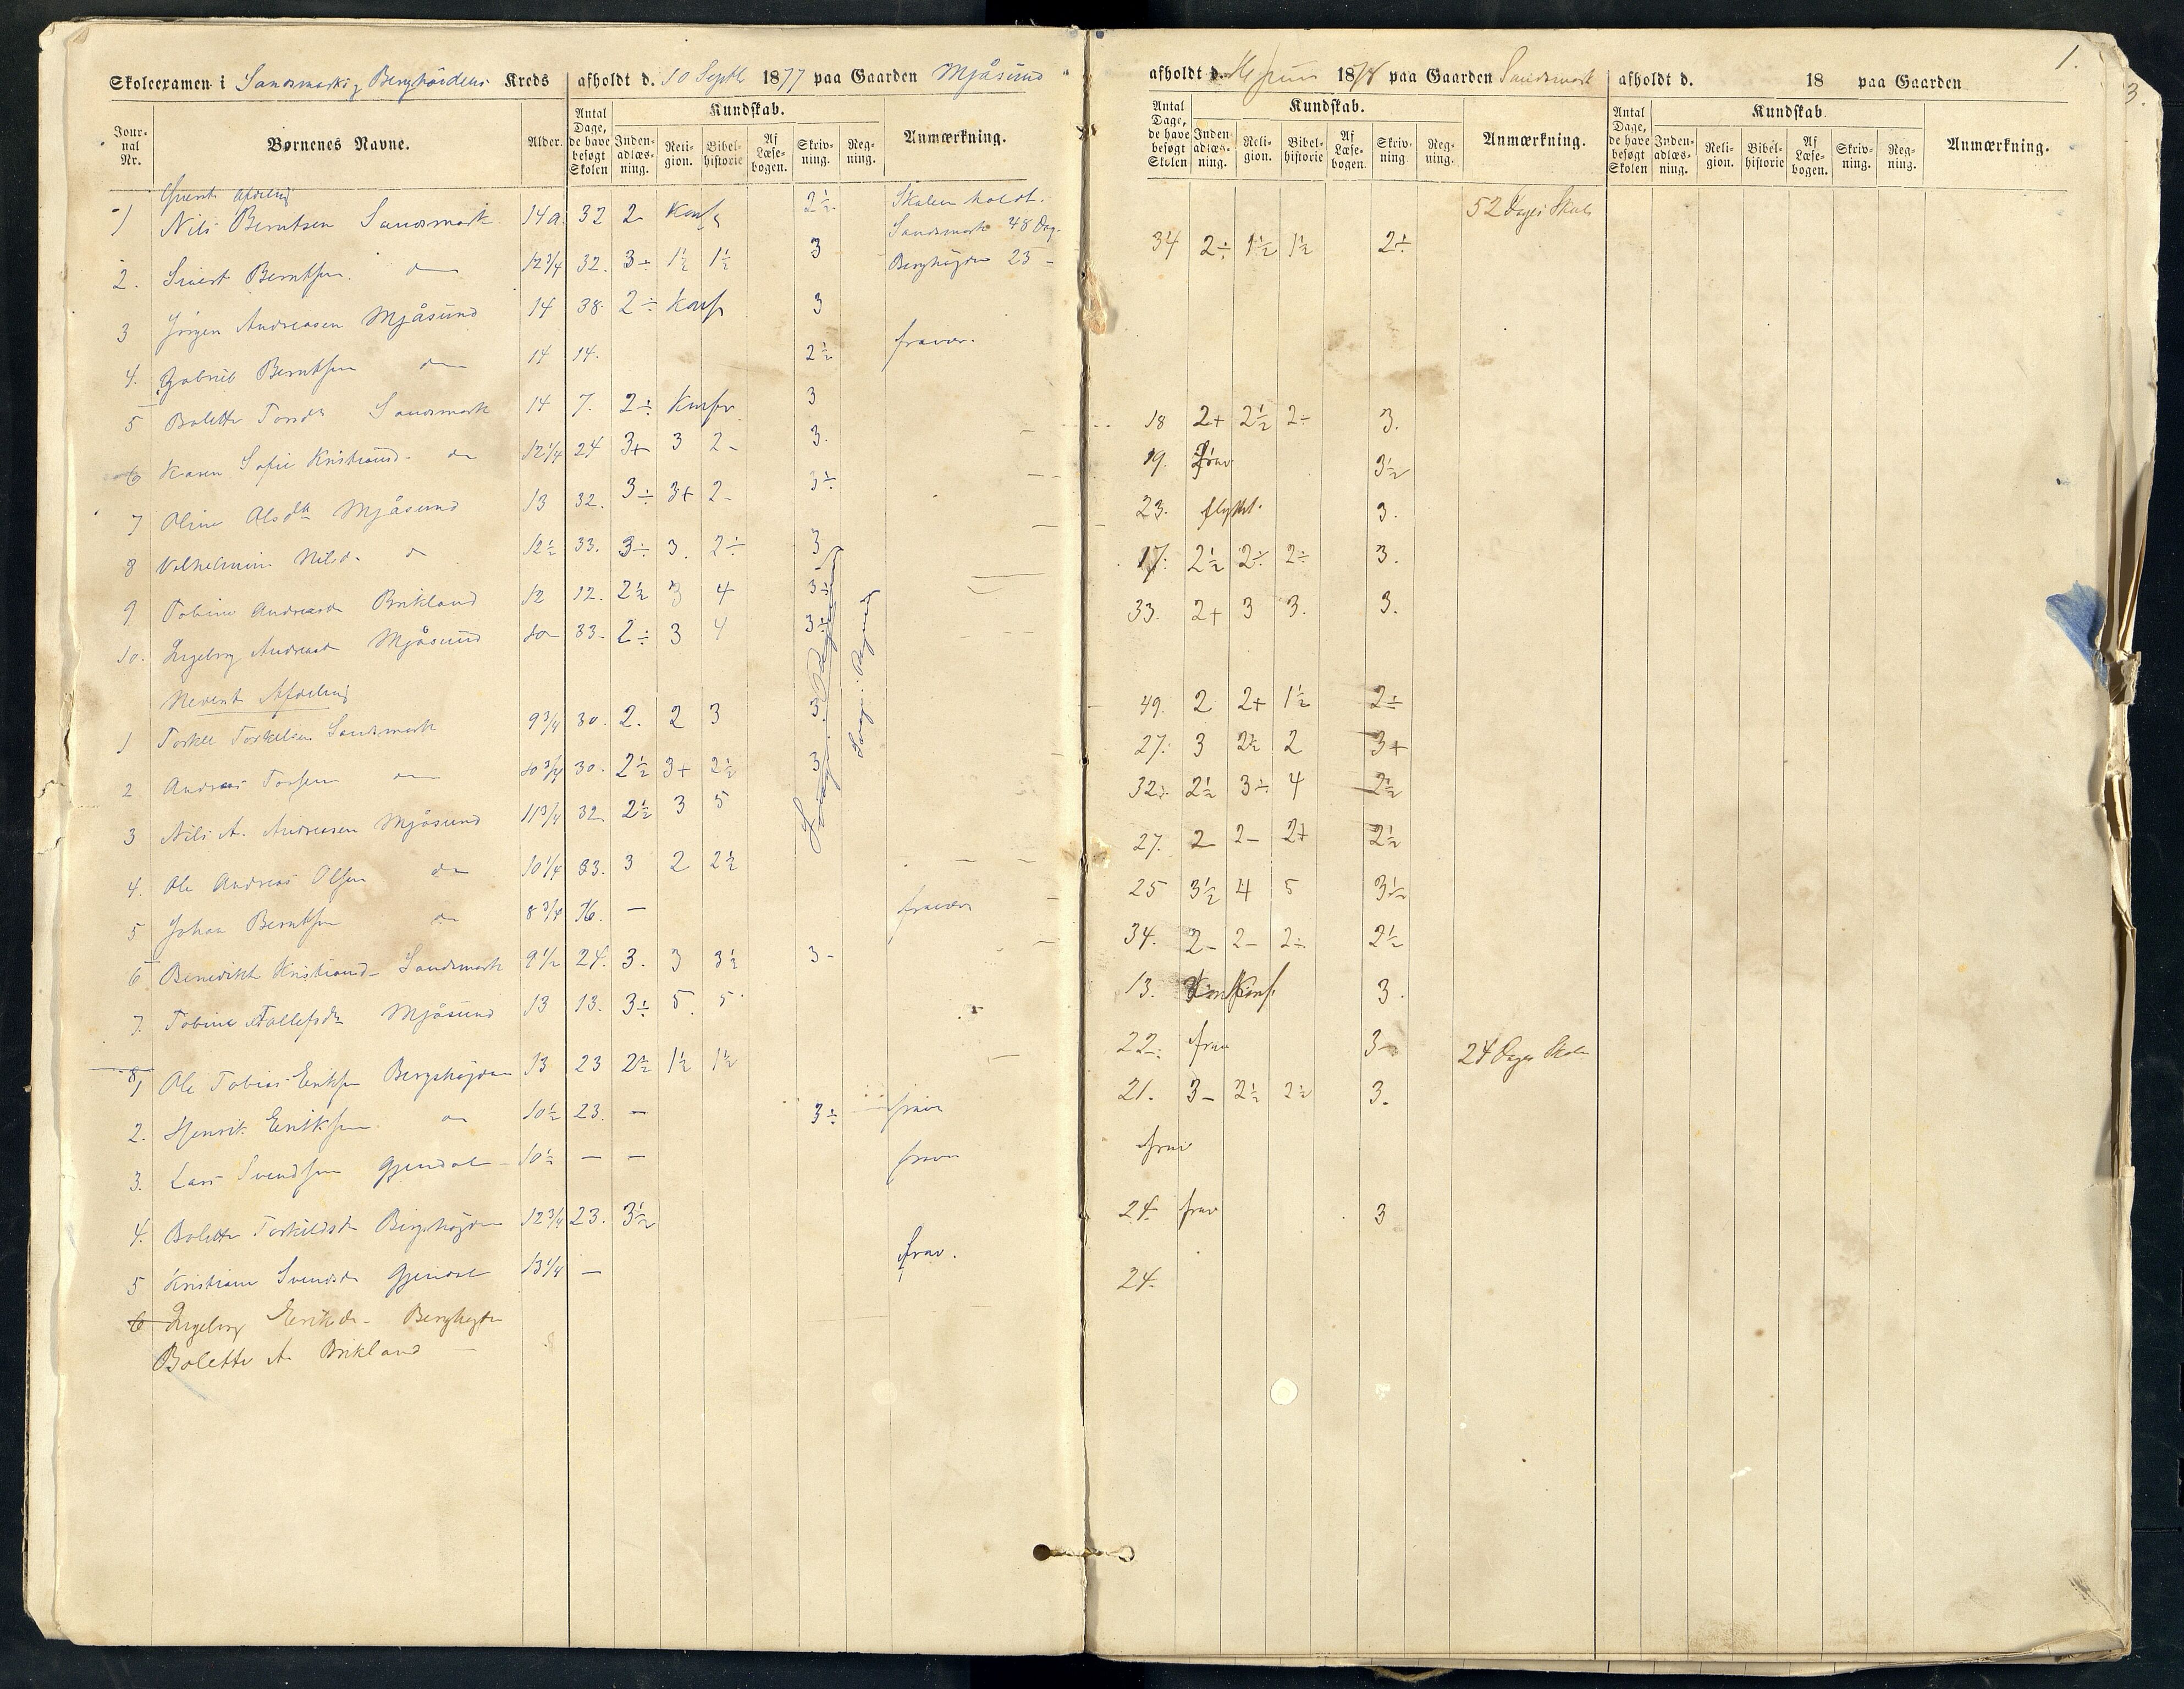 Skoleexamen i Sandsmark og Berghöidens Kreds afholdt d. 10 Septb 1877 paa Gaarden Mjåsund
Jour-nal Nr. Børnenes Navne. Alder. Antal Dage, de have besøgt Skolen Kundskab. Inden-adlæs-ning. Reli-gion. Bibel-historie Af Læse-bogen. Skriv-ning. Reg-ning. Anmærkning.
Øverste Afdeling
1 Nils Berntsen Sandsmark 14 a. 32 2 Konf 2½ Skolen holdt.
Sandsmark 48 Dag.
2. Sivert Berntsen. do 12¾ 32. 3÷ 1½ 1½ 3 Berghögden 23 –
3 Jörgen Andreasen Mjåsund 14 38 2÷ Konf 3
4. Gabriel Berntsen do 14 14. 2½ fravær.
5 Bolette Torsdr Sandsmark 14 7. 2÷ Konfr 3
6 Karen Sofie Kristiansd. do 12¼ 24 3+ 3 2– 3.
7 Oline Olsdtr Mjåsund 13 32. 3÷ 3+ 2– 3÷
8 Vilhelmine Nilsd. d 12½ 33. 3÷ 3. 2÷ 3
9 Tobine Andreasd Birkland 12 12. 2½ 3 4 3÷
10. Ingeborg Andreasd Mjåsund 10 33 2÷ 3 4 3÷
Nederste Afdeling
1 Torkel Torkelsen Sandsmark 9¾ 30. 2. 2 3 3
2 Andreas Torsen do 10¾ 30. 2½ 3+ 2½ 3
3 Nils A. Andreasen Mjåsund 11¾ 32 2½ 3 5
4. Ole Andreas Olsen do 10¼ 33. 3 2 2½
5 Johan Berntsen do 8¾ 16. – fravær
6 Benedikte Kristiansd– Sandsmark 9½ 24. 3. 3 3½ 3–
7. Tobine Tallefsdr Mjåsund 13 13. 3÷ 5. 5
8/1 Ole Tobias Eriksen Bergshøgden 13 23 2½ 1½ 1½
2. Henrik Eriksen do 10½ 23. – 3÷ frav
3. Lars Svendsen Gjendal 10½ – – frav
4. Bolette Torkildsd Bergshøgden 12¾ 23. 3½
5 Kristiane Svendsd Gjendal 13¼ – frav.
6 Ingeborg Eriksd– Berghøgden
Bolette A. Birkland –
1.
3.
afholdt d. Juni 1878 paa Gaarden Sandsmark
Antal Dage, de have besøgt Skolen Kundskab. Inden-adlæs-ning. Reli-gion. Bibel-historie Af Læse-bogen. Skriv-ning. Reg-ning. Anmærkning.
52 Dages Skole
34 2÷ 1½ 1½ 2÷
18 2+ 2½ 2÷ 3.
19. frav 3½
23. flyttet. 3.
17. 2½ 2÷ 2÷ 3.
33. 2+ 3 3. 3.
49. 2 2+ 1½ 2÷
27. 3 2½ 2 3+
32. 2½ 3÷ 4 2½
27. 2 2– 2+ 2½
25 3½ 4 5 3½
34. 2– 2– 2÷ 2½
13. Konf. 3.
22. frav 3– 24 Dages Skole
21. 3– 2½ 2½ 3.
frav
24. frav 3
24.
afholdt d. 18 paa Gaarden
Antal Dage, de have besøgt Skolen Kundskab. Inden-adlæs-ning. Reli-gion. Bibel-historie Af Læse-bogen. Skriv-ning. Reg-ning. Anmærkning.